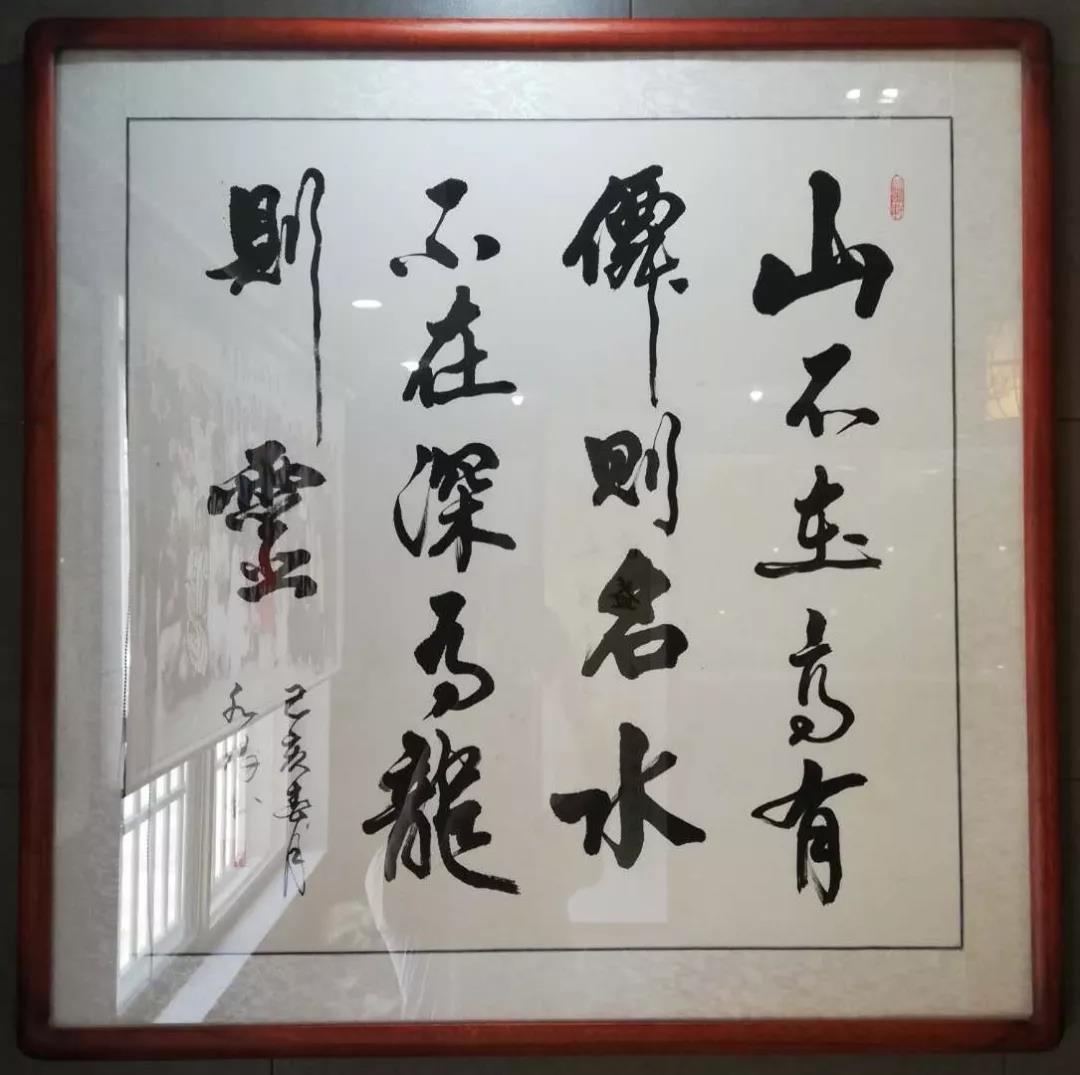 山不在高有
僊則名水
不在深有龍
則靈
己亥春月